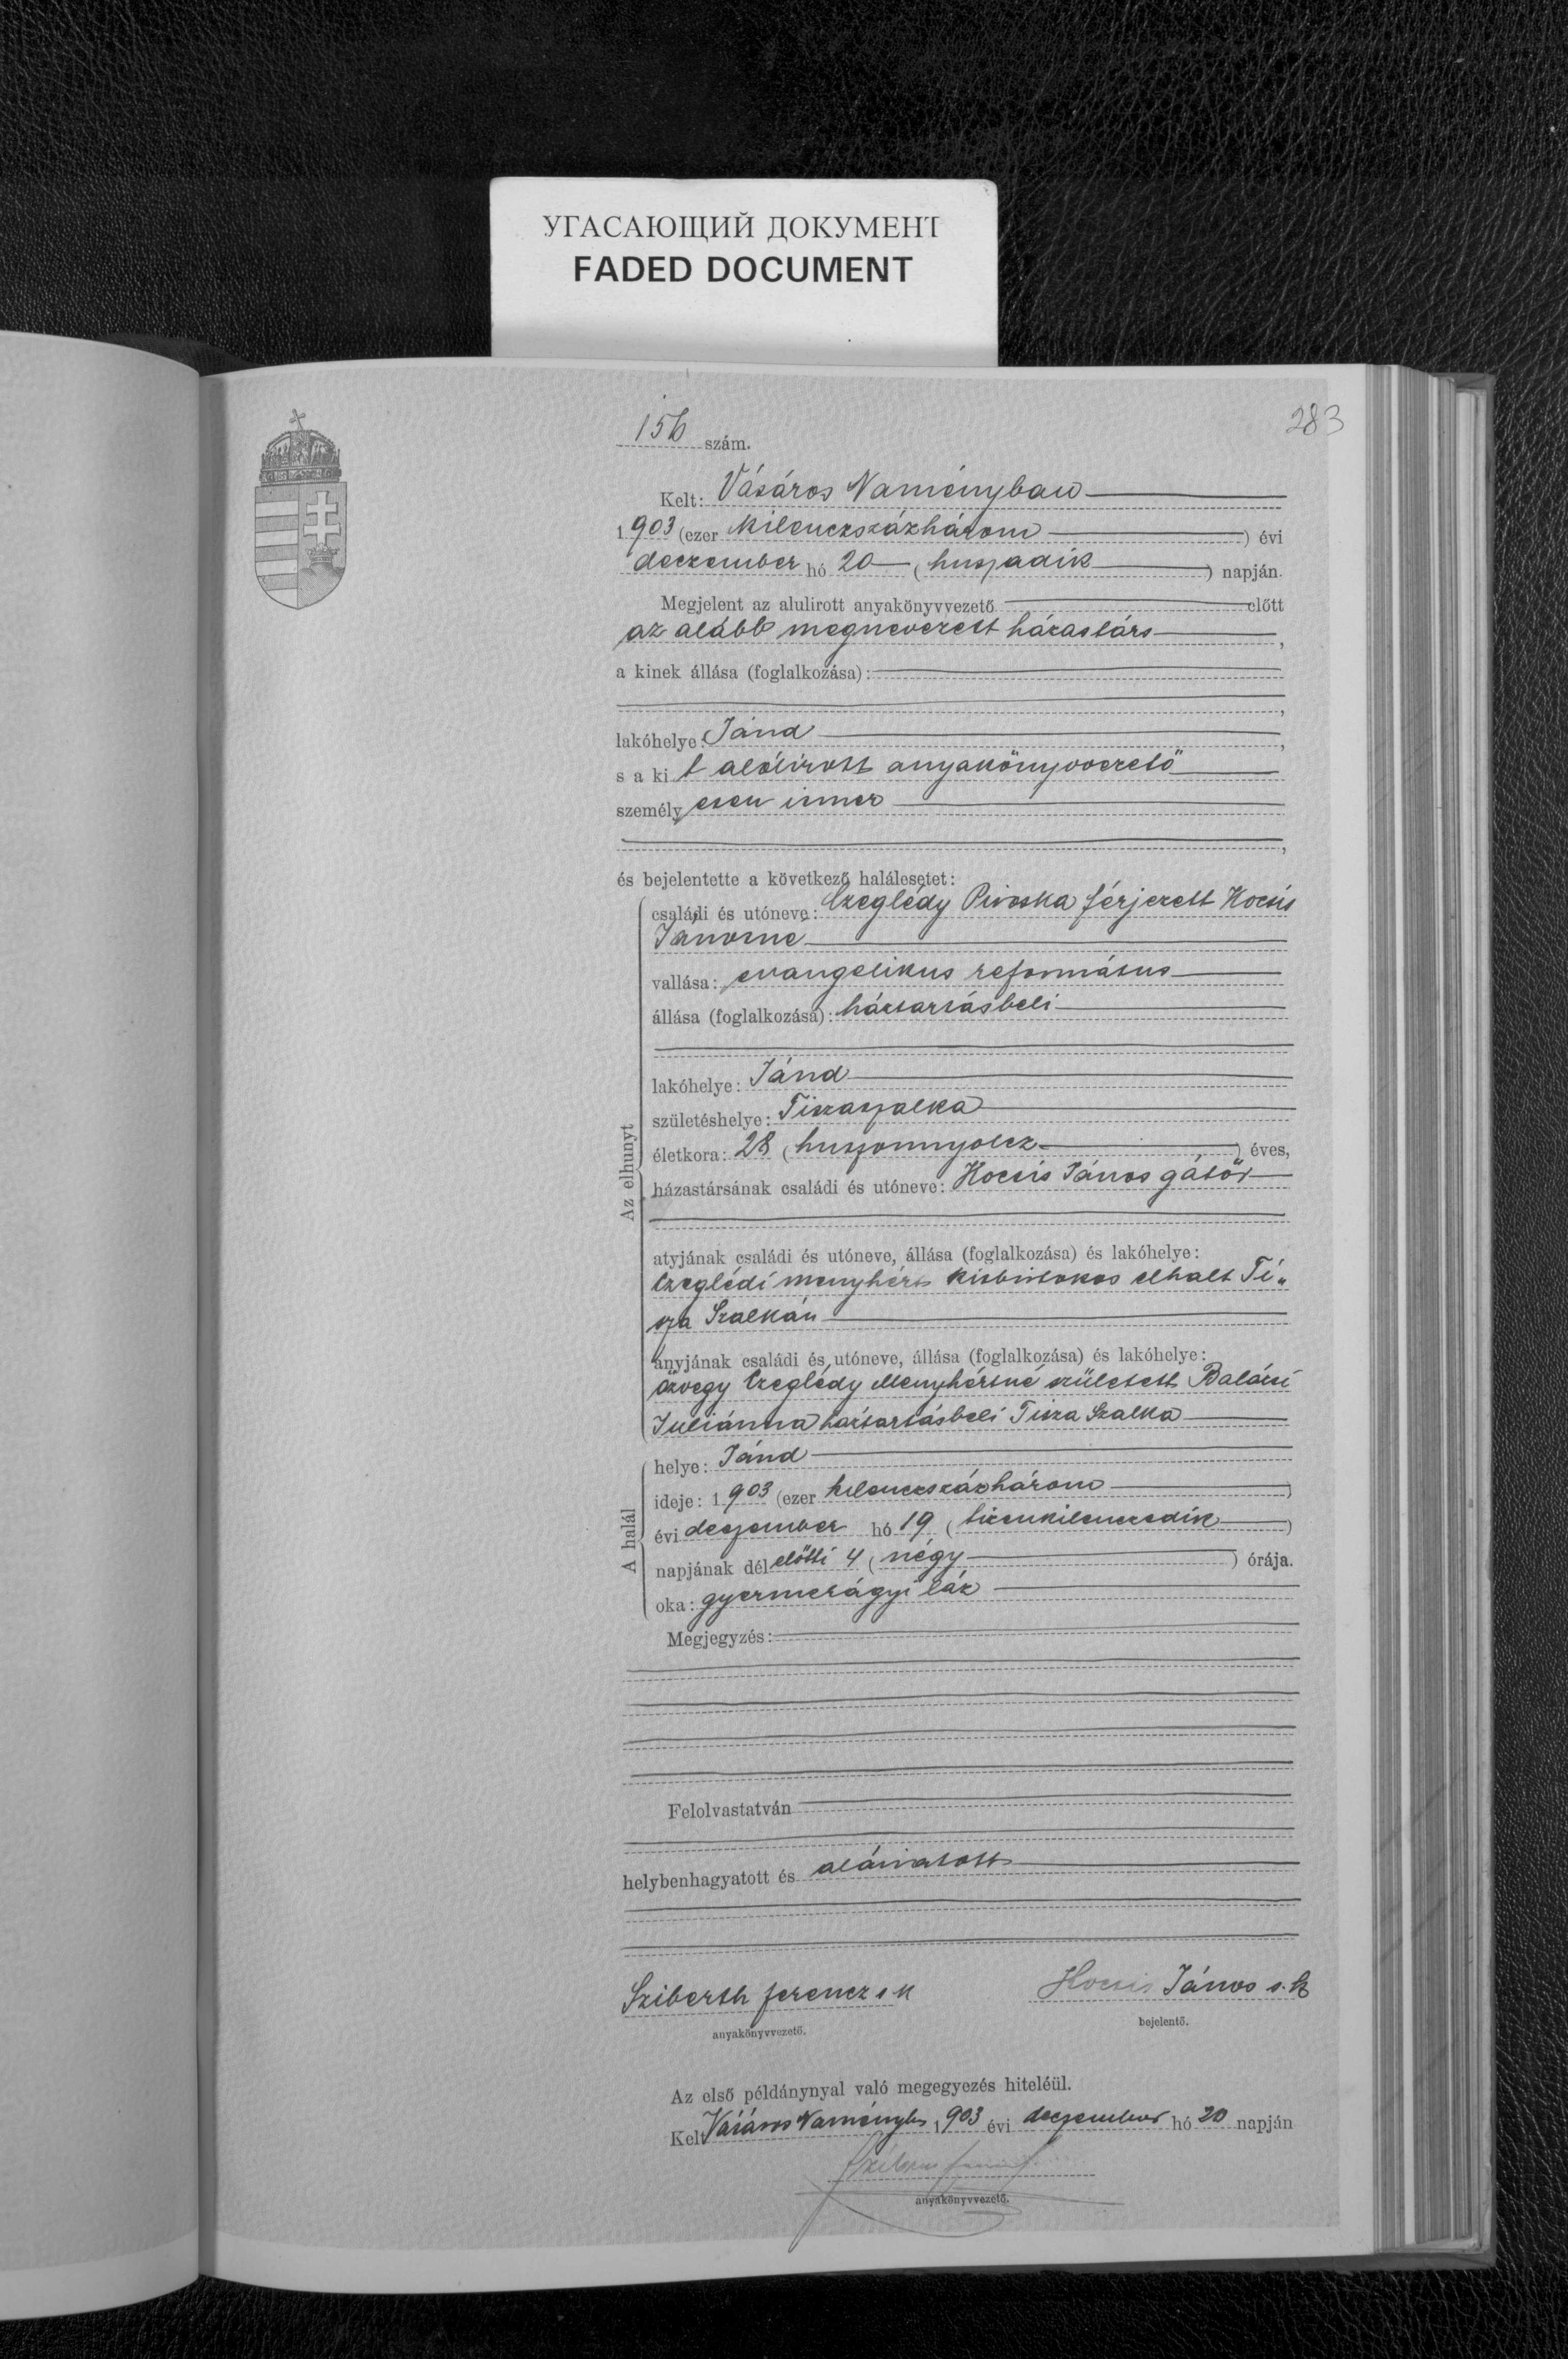 УГАСАЮЩИЙ ДОКУМЕНТ
FADED DOCUMENT
283
156 szám.
Kelt: Vásáros Naményban
1903 (ezer kilenczszázhárom) évi
deczember hó 20 (huszadik) napján.
Megjelent az alulirott anyakönyvvezető előtt
az alább megnevezett házastárs,
a kinek állása (foglalkozása):
,
lakóhelye: Jánd,
s a kit alólirott anyakönyvvezető
személyesen ismer
,
és bejelentette a következő halálesetet:
Az elhunyt
családi és utóneve: Czeglédy Piroska férjezett Kocsis
Jánosné
vallása: evangelikus református
állása (foglalkozása): háztartásbeli
lakóhelye: Jánd
születéshelye: Tiszaszalka
életkora: 28 (huszonnyolcz) éves,
házastársának családi és utóneve: Kocsis János gátőr
atyjának családi és utóneve, állása (foglalkozása) és lakóhelye:
Czeglédi Menyhért kisbirtokos elhalt Ti„
sza Szalkán
anyjának családi és utóneve, állása (foglalkozása) és lakóhelye:
özvegy Czeglédy Menyhértné született
Juliánna háztartásbeli Tisza Szalka
A halál
helye: Jánd
ideje: 1903 (ezer kilenczszázhárom)
évi deczember hó 19 (tizenkilenczedik)
napjának dél előtti 4 (négy) órája.
oka: gyermekágyi láz
Megjegyzés:
Felolvastatván
helybenhagyatott és aláiratott
Sziberth Ferencz s k
anyakönyvvezető.
Kocsis János s. k
bejelentő.
Az első példánynyal való megegyezés hiteléül.
Kelt Vásáros Naményba 1903 évi deczember hó 20 napján
anyakönyvvezető.